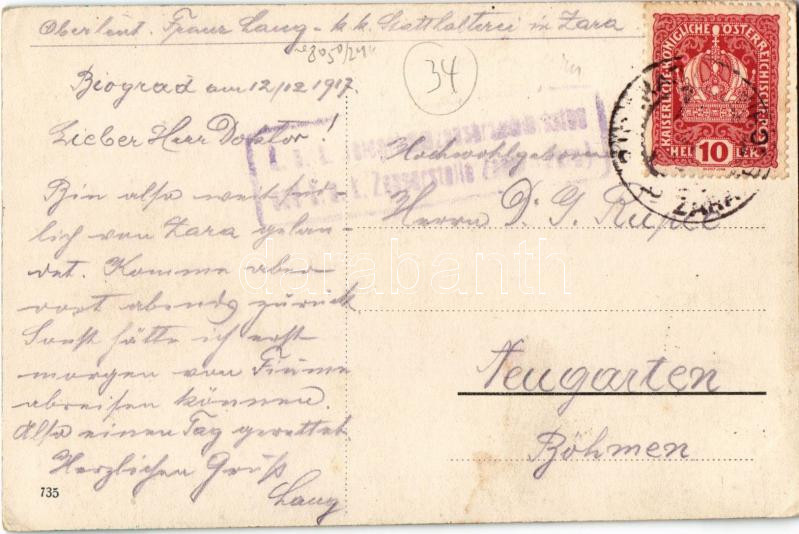 Oberleut. Franz Lang - k. k. Statthalterei in Zara
8050/29
34
Biograd am 12/12 1917.
Lieber Herr Doktor!
Bin also
lich von Zara gelan-
det. Komme aber
dort abends zurück
Sonst hätte ich erst
morgen von Fiume
abreisen können.
Also einen Tag gerettet.
Herzlichen Gruß
Lang
735
Hochwohlgeboren
Herrn D. G.
Neugarten
Böhmen
KAISERLICHE KÖNIGLICHE ÖSTERREICHISCHE POST
HELLER 10
ZARA
k. Zensurstelle
darabanth